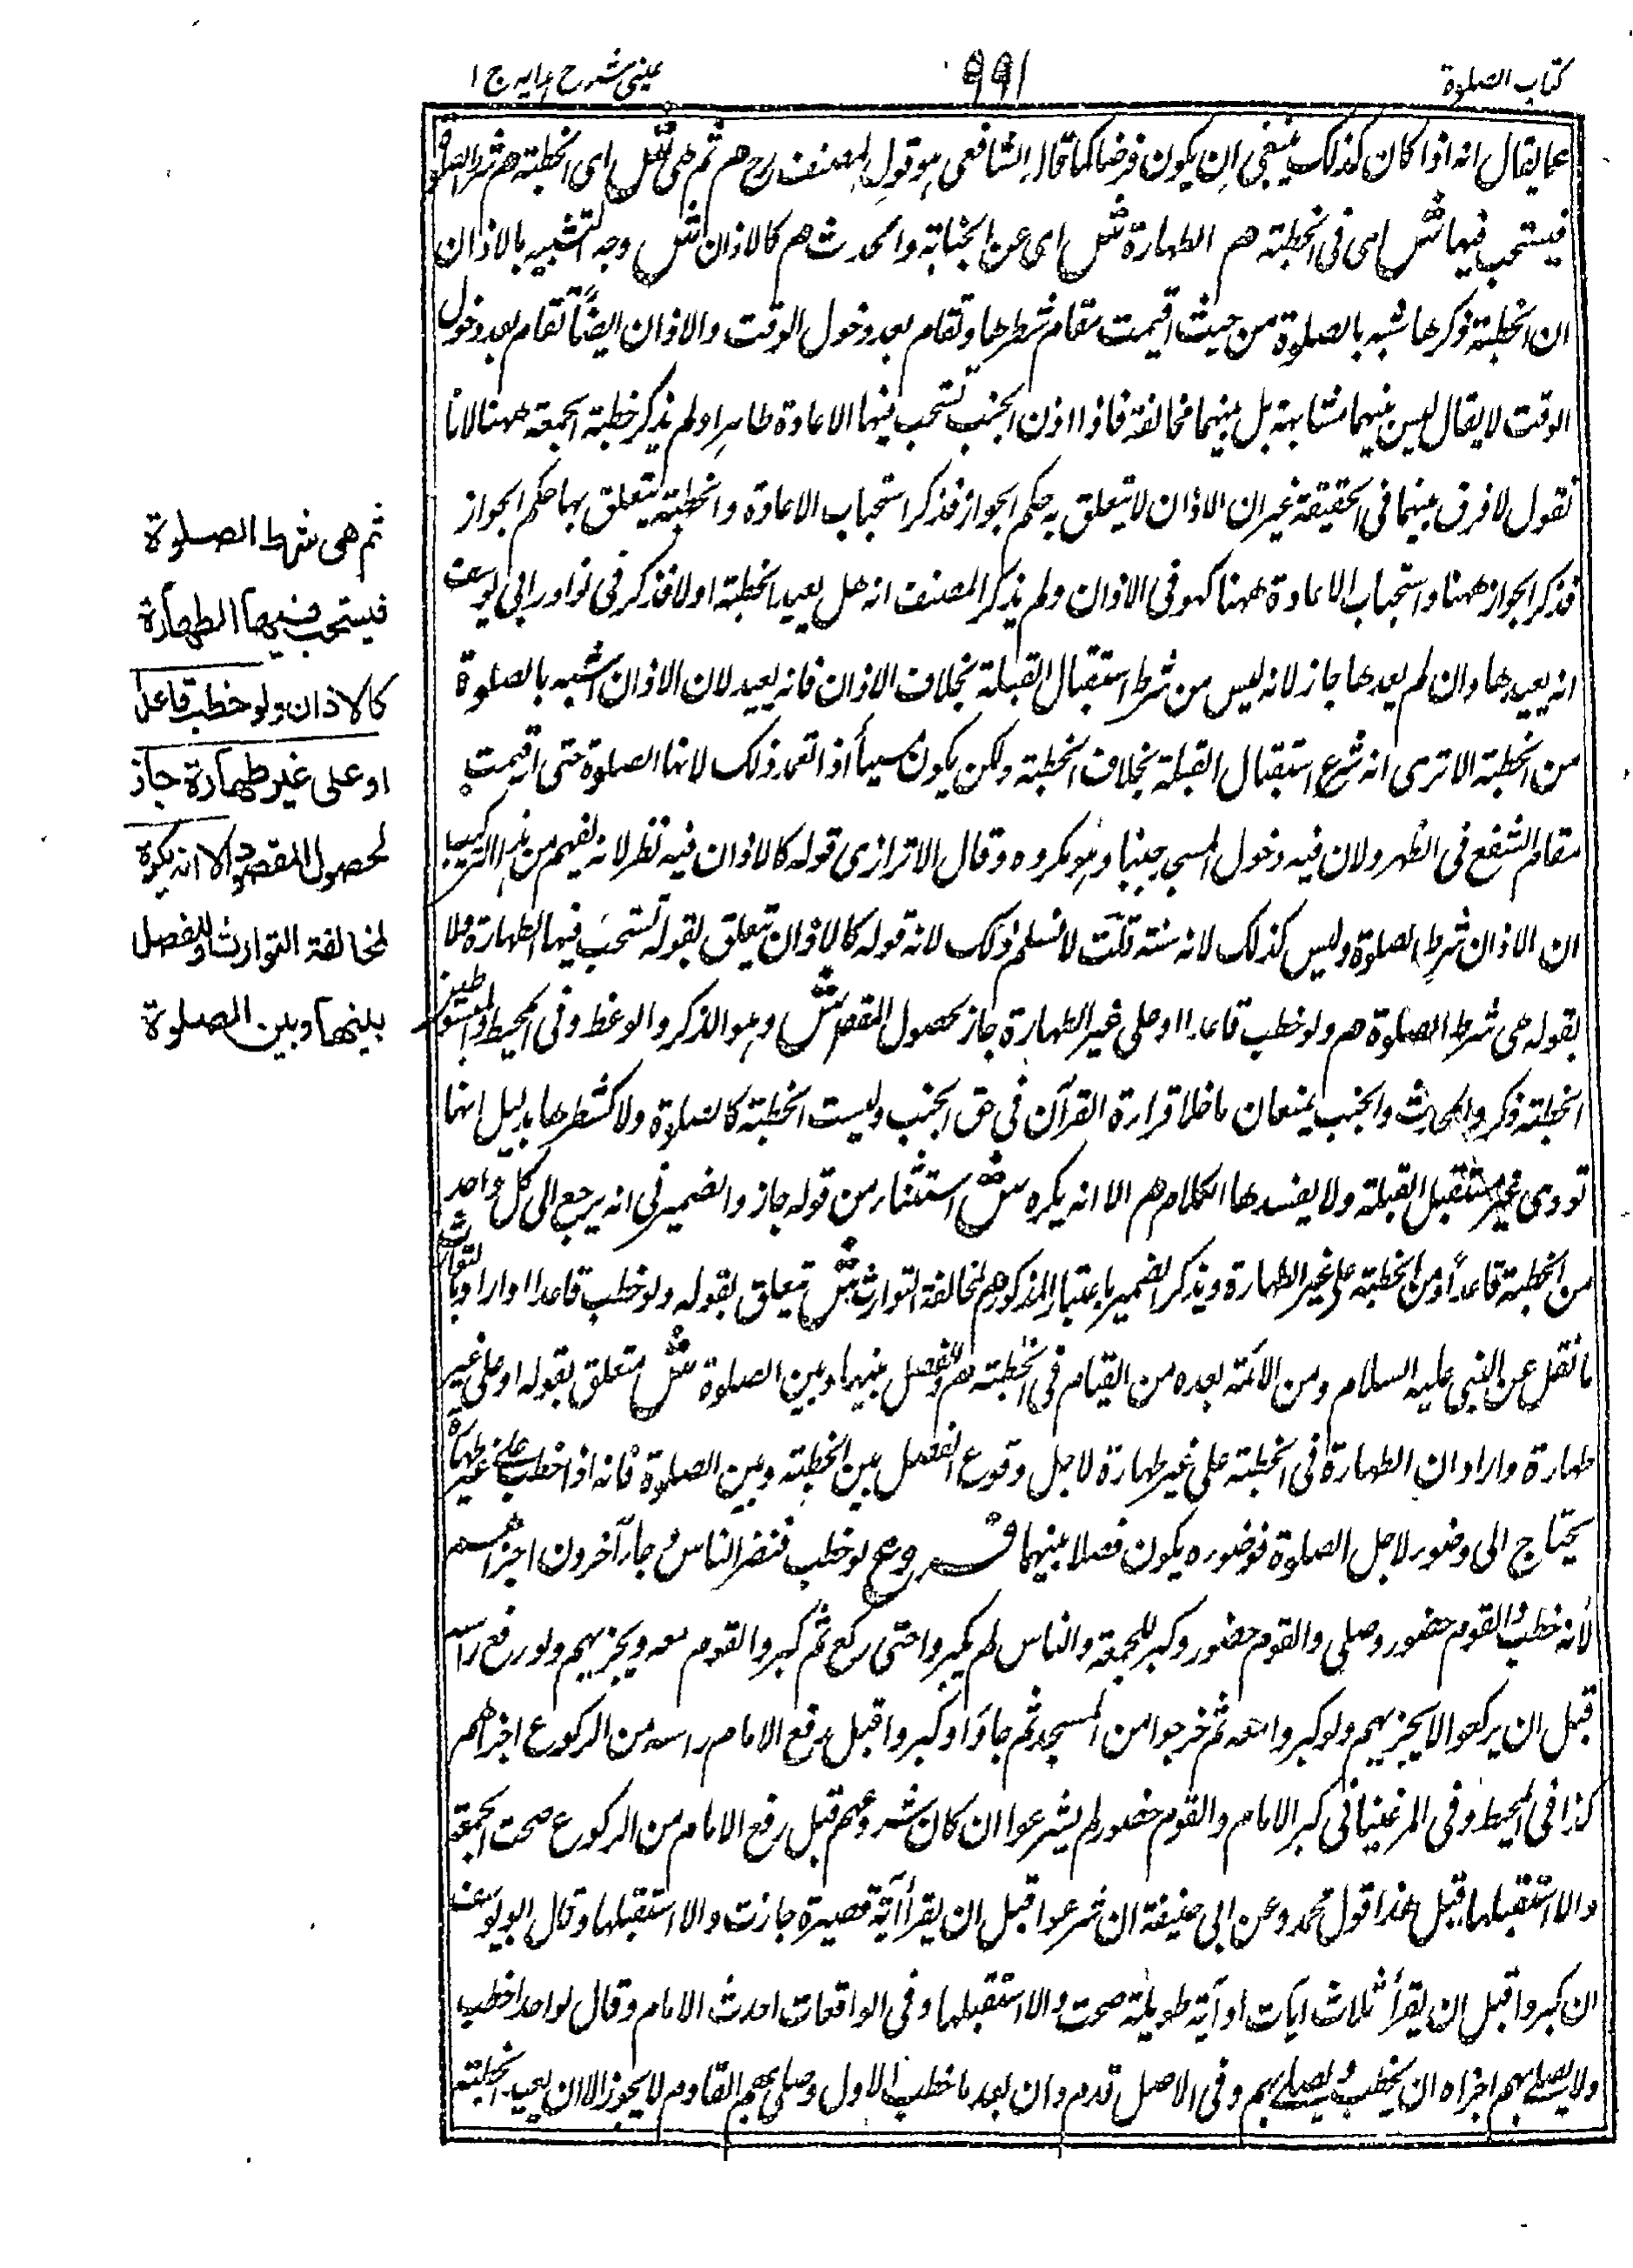 كتاب الصلوة
٩٩١
عينى شرح هدايه ج ١
عما يقال انه اذا كان كذلك ينبغى ان يكون فرضا كما قال الشافعى هو قول المصنف رح هم ثم هى ش اى الخطبة هم شرط الصلوة
فيستحب فيها ش اى فى الخطبة هم الطهارة ش اى عن الجنابة والحدث هم كالاذان ش وجه التشبيه بالاذان
ان الخطبة ذكرها شبه بالصلوة من حيث اقيمت مقام شطرها وتقام بعد دخول الوقت والاذان ايضاً تقام بعد دخول
الوقت لا يقال ليس بينهما مشابهة بل بينهما مخالفة فاذا اذن الجنب تستحب فيها الاعادة طاهرا ولم يذكر خطبة الجمعة ههنا لانا
نقول لا فرق بينهما فى الحقيقة غير ان الاذان لا يتعلق به حكم الجواز فذكر استحباب الاعادة والخطبة يتعلق بها حكم الجواز
فذكر الجواز ههنا واستحباب الاعادة ههنا كهو فى الاذان ولم يذكر المصنف انه هل يعيد الخطبة اولا فذكر فى نوادر ابى يوسف
انه يعيدها وان لم يعدها جاز لانه ليس من شرط استقبال القبلة بخلاف الاذان فانه يعيد لان الاذان اشبه بالصلوة
من الخطبة الا ترى انه شرع استقبال القبلة بخلاف الخطبة ولكن يكون مسيأ اذا تعمد ذلك لانها الصلوة حتى اقيمت
مقام الشفع فى الظهر ولان فيه دخول المسجد جنبا وهو مكروه وقال الاترازى قوله كالاذان فيه نظر لانه يفهم من هذا التركيب
ان الاذان شرط الصلوة وليس كذلك لانه سنة قلت لا نسلم ذلك لانه قوله كالاذان يتعلق بقوله تستحب فيها الطهارة فلا
بقوله هى شرط الصلوة هم ولو خطب قاعدا او على غير الطهارة جاز لحصول المقصود ش وهو الذكر والوعظ وفى المحيط والمبسوط
الخطبة ذكر والمحدث والجنب لا يمنعان ما خلا قراءة القرآن فى حق الجنب وليست الخطبة كالصلوة ولا كشطرها بدليل انها
تؤدى غير مستقبل القبلة ولا يفسدها الكلام هم الا انه يكره ش استثناء من قوله جاز والضمير فى انه يرجع الى كل واحد
من الخطبة قاعداً ومن الخطبة على غير الطهارة ويذكر الضمير باعتبار المذكور هم لمخالفة التوارث ش يتعلق بقوله ولو خطب قاعدا واراد بالتوارث
ما نقل عن النبى عليه السلام ومن الائمة بعده من القيام فى الخطبة هم وللفصل بينها وبين الصلوة ش متعلق بقوله او على غير
طهارة واراد ان الطهارة فى الخطبة على غير طهارة لاجل وقوع الفصل بين الخطبة وبين الصلوة فانه اذا خطب على غير طهارة
يحتاج الى وضوء لاجل الصلوة فوضوءه يكون فصلا بينهما فروع لو خطب فنفر الناس وجاء آخرون اجزاهم
لانه خطب والقوم حضور وصلى والقوم حضور وكبر للجمعة والناس لم يكبروا حتى ركع ثم كبروا القوم معه ويجزيهم ولو رفع رأسه
قبل ان يركعوا لا يجزيهم ولو كبروا معه ثم خرجوا من المسجد ثم جاؤا وكبروا قبل رفع الامام راسه من الركوع اجزاهم
كذا فى المحيط وفى المرغينانى كبر الامام والقوم حضور لم يشرعوا ان كان شروعهم قبل رفع الامام من الركوع صحت الجمعة
والا استقبلها قبل هذا قول محمد وعن ابى حنيفة ان شرعوا قبل ان يقرأ آية قصيرة جازت والا استقبلها وقال ابو يوسف
ان كبروا قبل ان يقرأ ثلاث آيات او آية طويلة صحت والا استقبلها وفى الواقعات احدث الامام وقال لواحد اخطب
ولا يصلى بهم اجزاه ان يخطب ويصلى بهم وفى الاصل قدم وان بعد ما خطب الاول وصلى بهم القادم لا يجوز الا ان يعيد الخطبة
ثم هى شرط الصلوة
فيستحب فيها الطهارة
كالاذان ولو خطب قاعدا
او على غير طهارة جاز
لحصول المقصود الا انه يكره
لمخالفة التوارث وللفصل
بينها وبين الصلوة